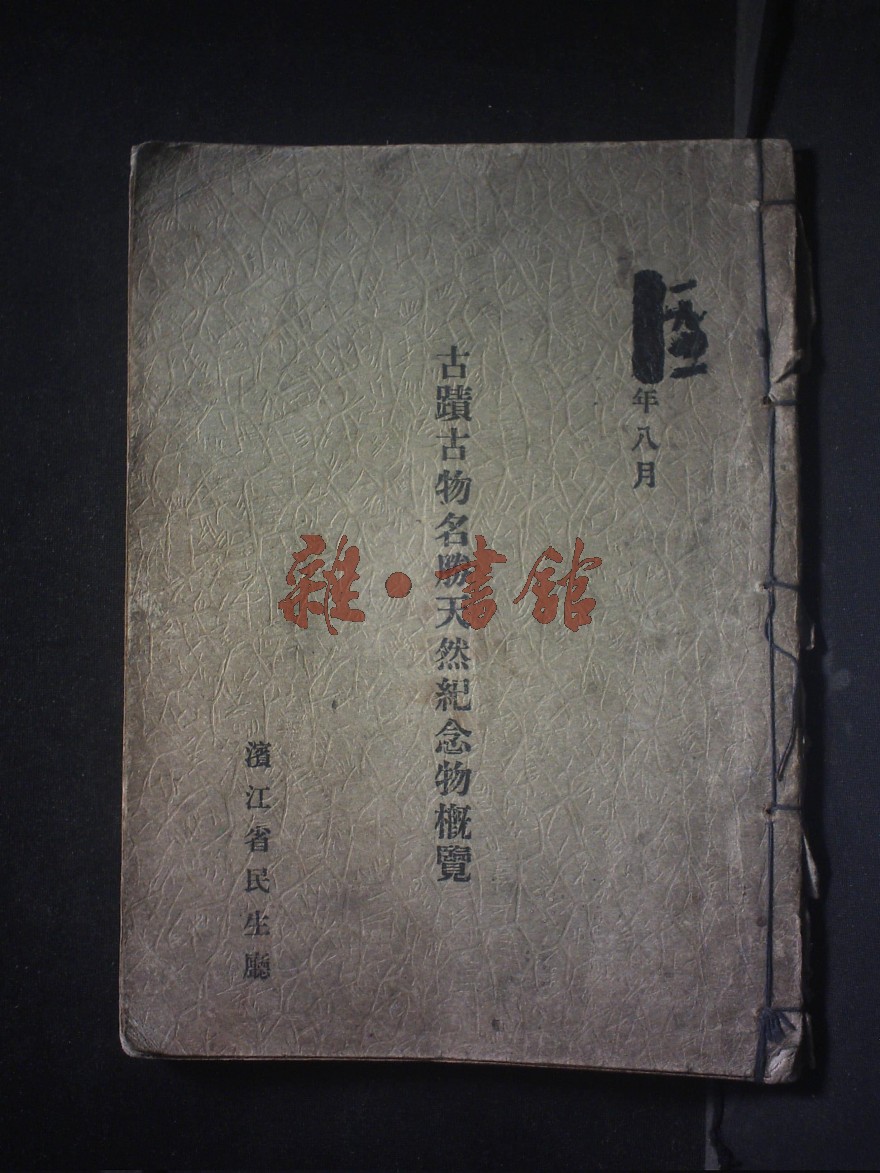 年八月
古蹟古物名勝天然紀念物概覽
濱江省民生廳
雜·書館